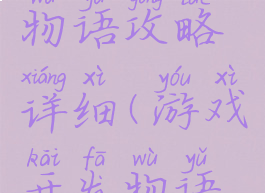 wù yǔ gōng lüè
物语攻略
xiáng xì yóu xì
详细(游戏
kāi fā wù yǔ
开发物语